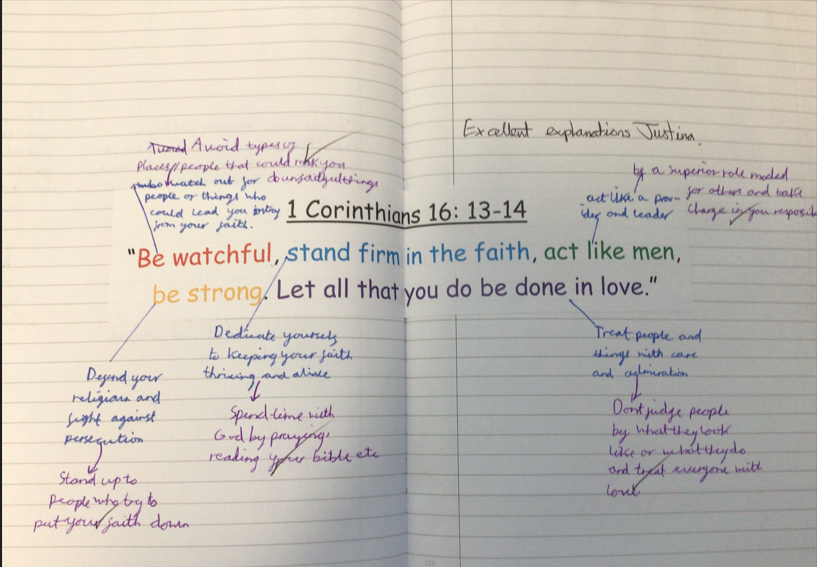 Excellent explanations Justina.
Avoid types of
places/people that could make you
do unfaithful things
watch out for
people or things who
could lead you astray
from your faith.
be a superior role model
for others and take
charge in you resposib
act like a prov-
ider and leader
1 Corinthians 16: 13-14
"Be watchful, stand firm in the faith, act like men,
be strong. Let all that you do be done in love."
Dedicate yourself
to keeping your faith
thriving and alive
Spend time with
God by praying,
reading your bible etc
Treat people and
things with care
and admiration
Dont judge people
by what they look
like or what they do
and treat everyone with
love.
Defend your
religion and
fight against
persecution
Stand up to
people who try to
put your faith down